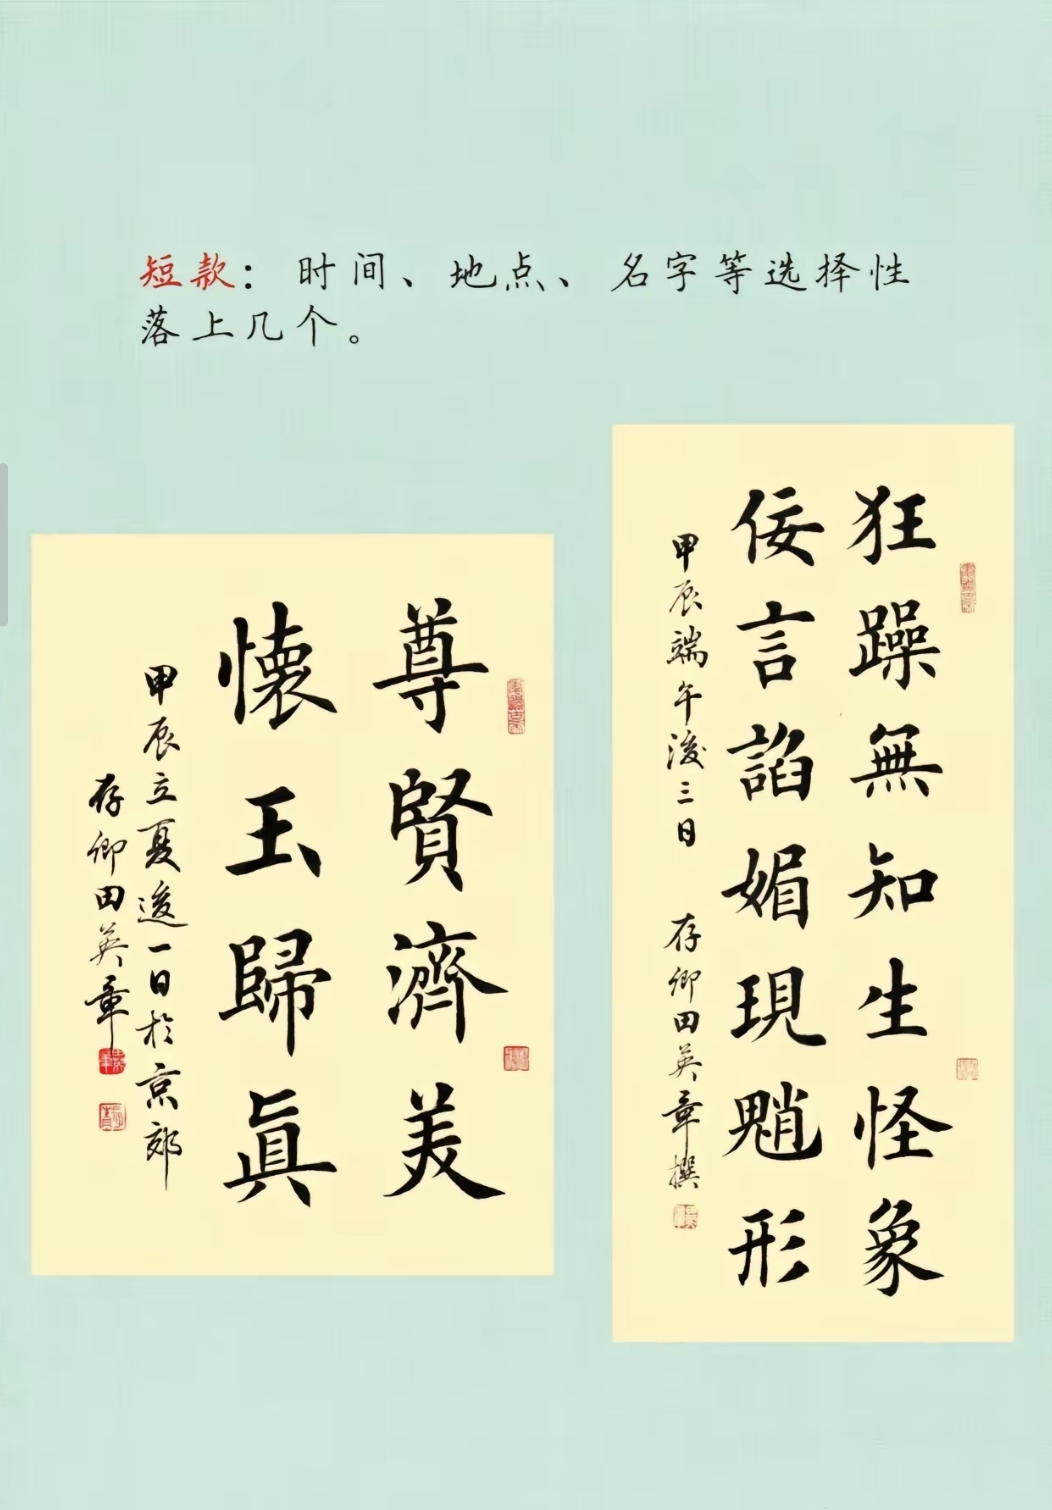 短款：时间、地点、名字等选择性
落上几个。
尊賢濟美
懷玉歸真
甲辰立夏後一日於京郊
存卿田英章
狂躁無知生怪象
佞言諂媚現魈形
甲辰端午後三日 存卿田英章撰